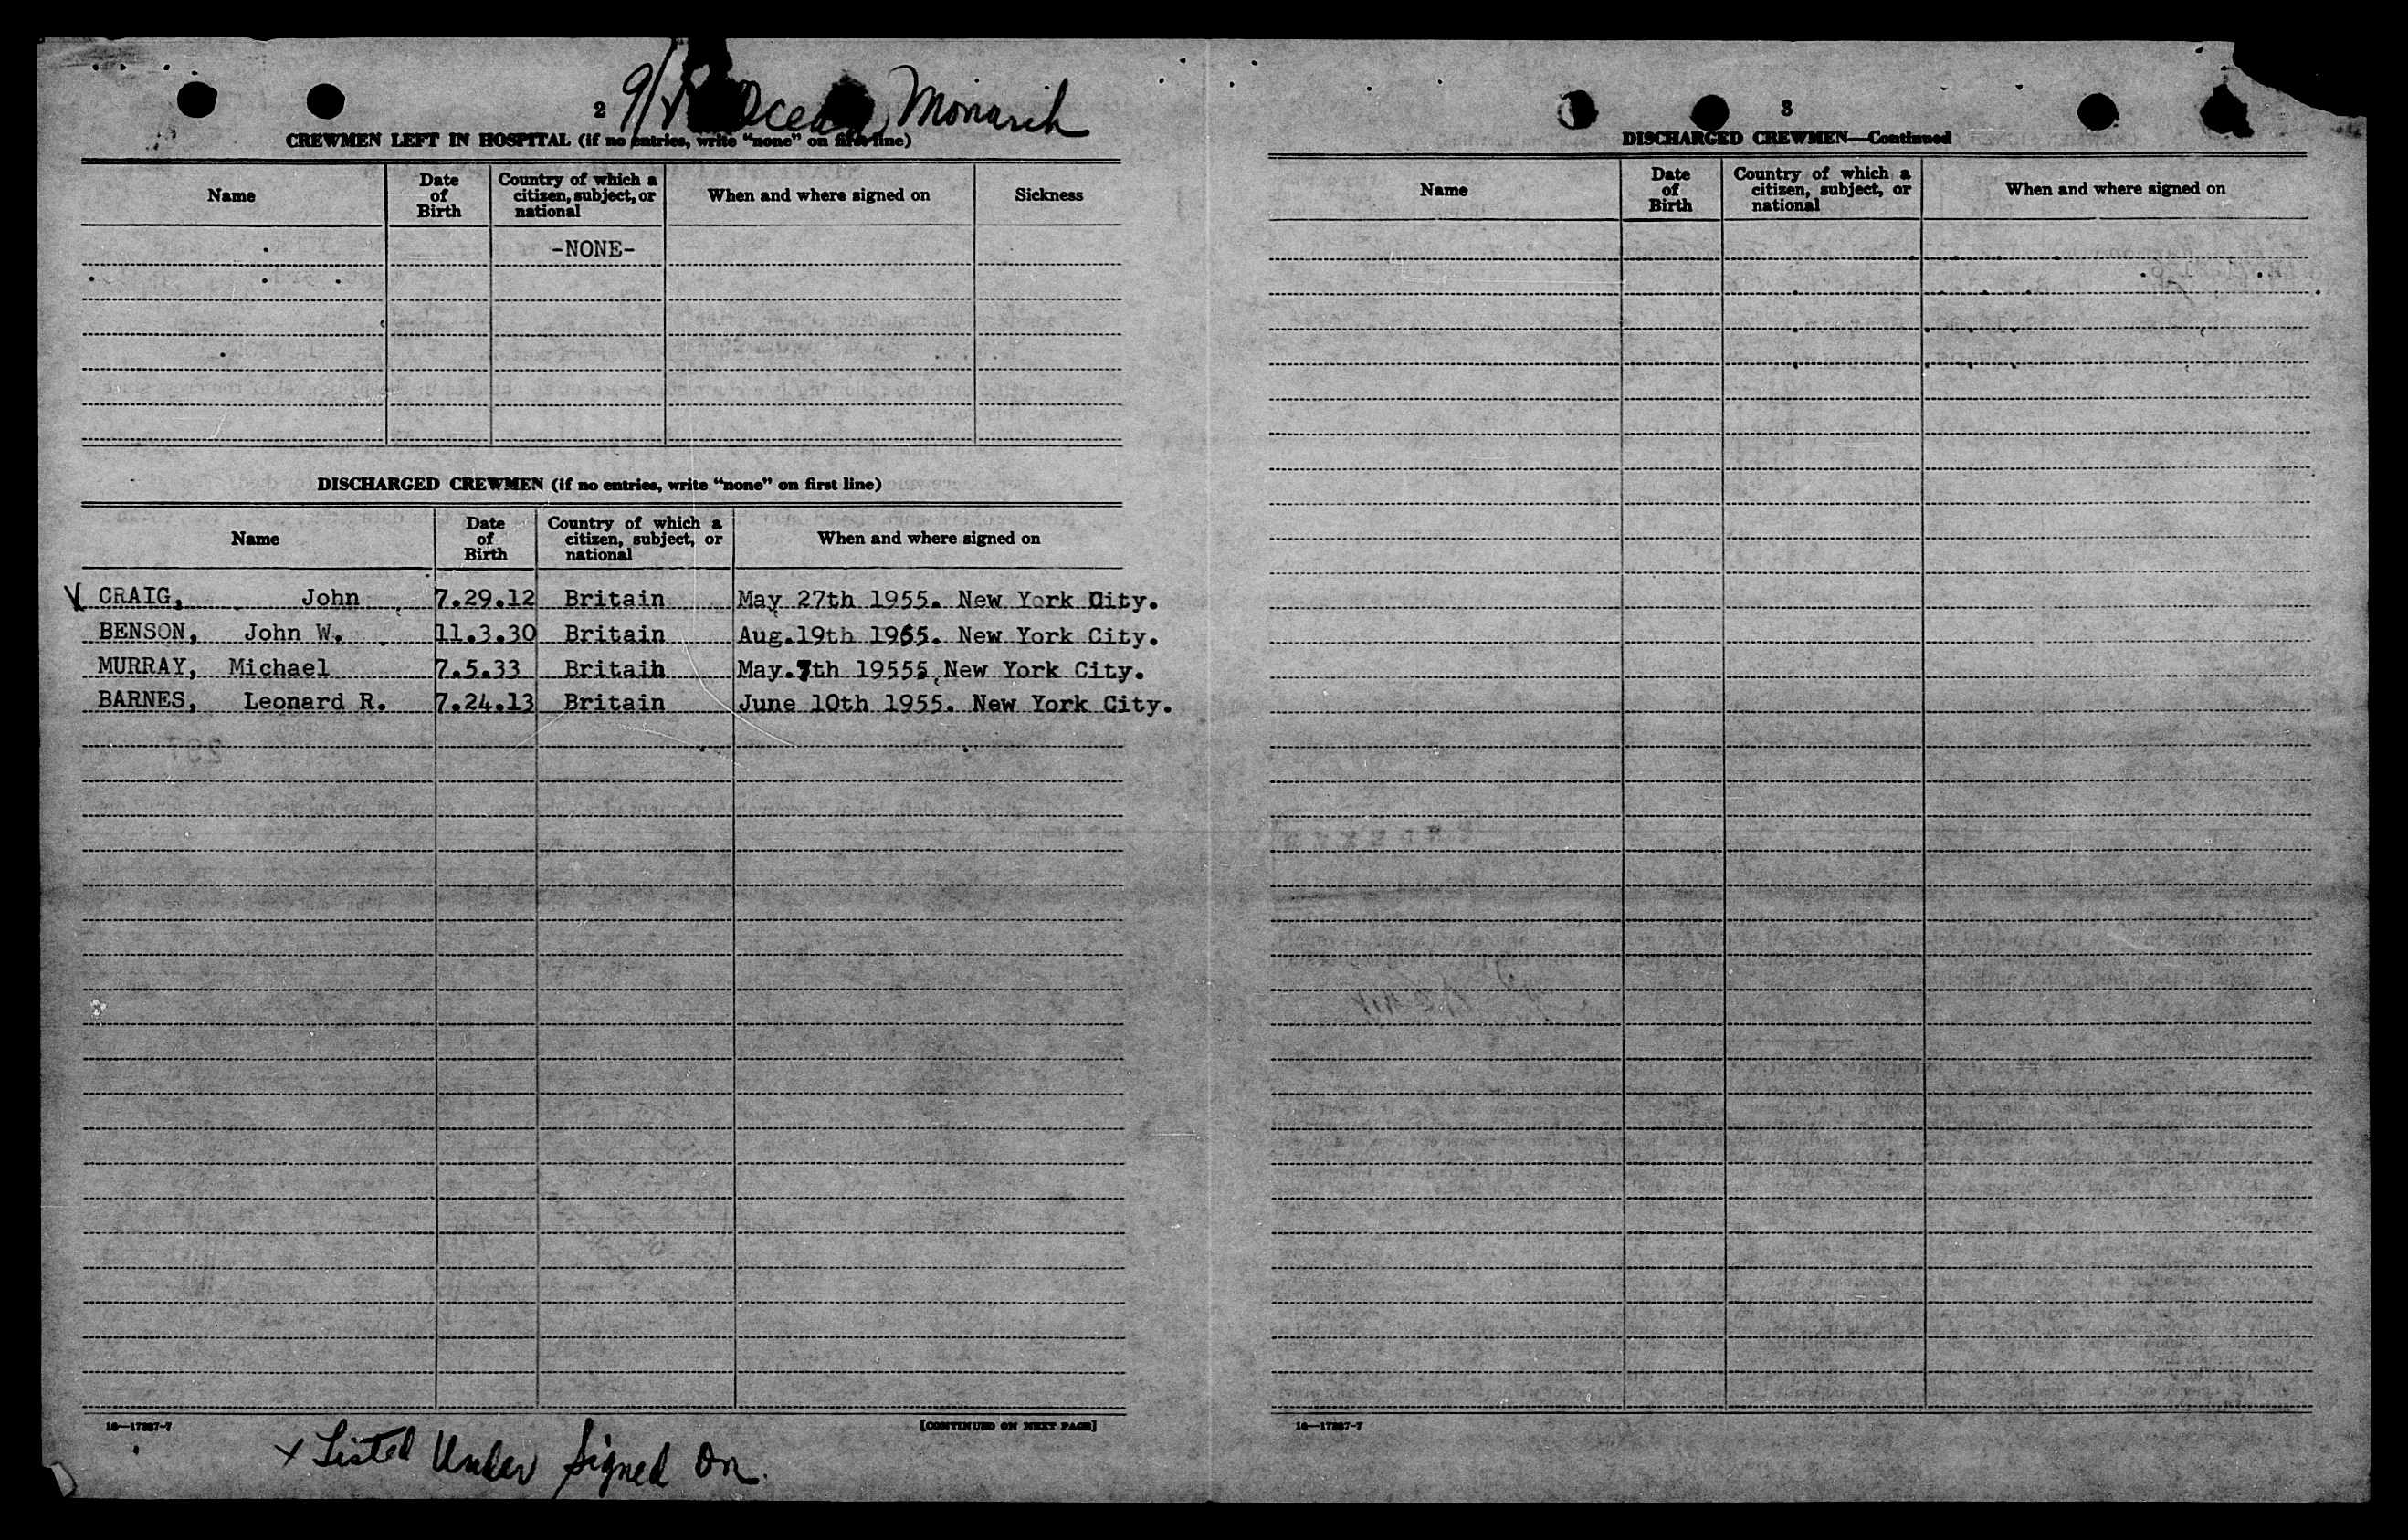 2
Ocean Monarch
CREWMEN LEFT IN HOSPITAL (if no entries, write "none" on first line)
Name
Date of Birth
Country of which a citizen, subject, or national
When and where signed on
Sickness
-NONE-
DISCHARGED CREWMEN (if no entries, write "none" on first line)
Name
Date of Birth
Country of which a citizen, subject, or national
When and where signed on
CRAIG, John 7.29.12 Britain May 27th 1955. New York City.
BENSON, John W. 11.3.30 Britain Aug.19th 1955. New York City.
MURRAY, Michael 7.5.33 Britain May.7th 19555 New York City.
BARNES, Leonard R. 7.24.13 Britain June 10th 1955. New York City.
16—17287-7
[CONTINUED ON NEXT PAGE]
x Listed Under Signed On.
3
DISCHARGED CREWMEN—Continued
Name
Date of Birth
Country of which a citizen, subject, or national
When and where signed on
16—17287-7